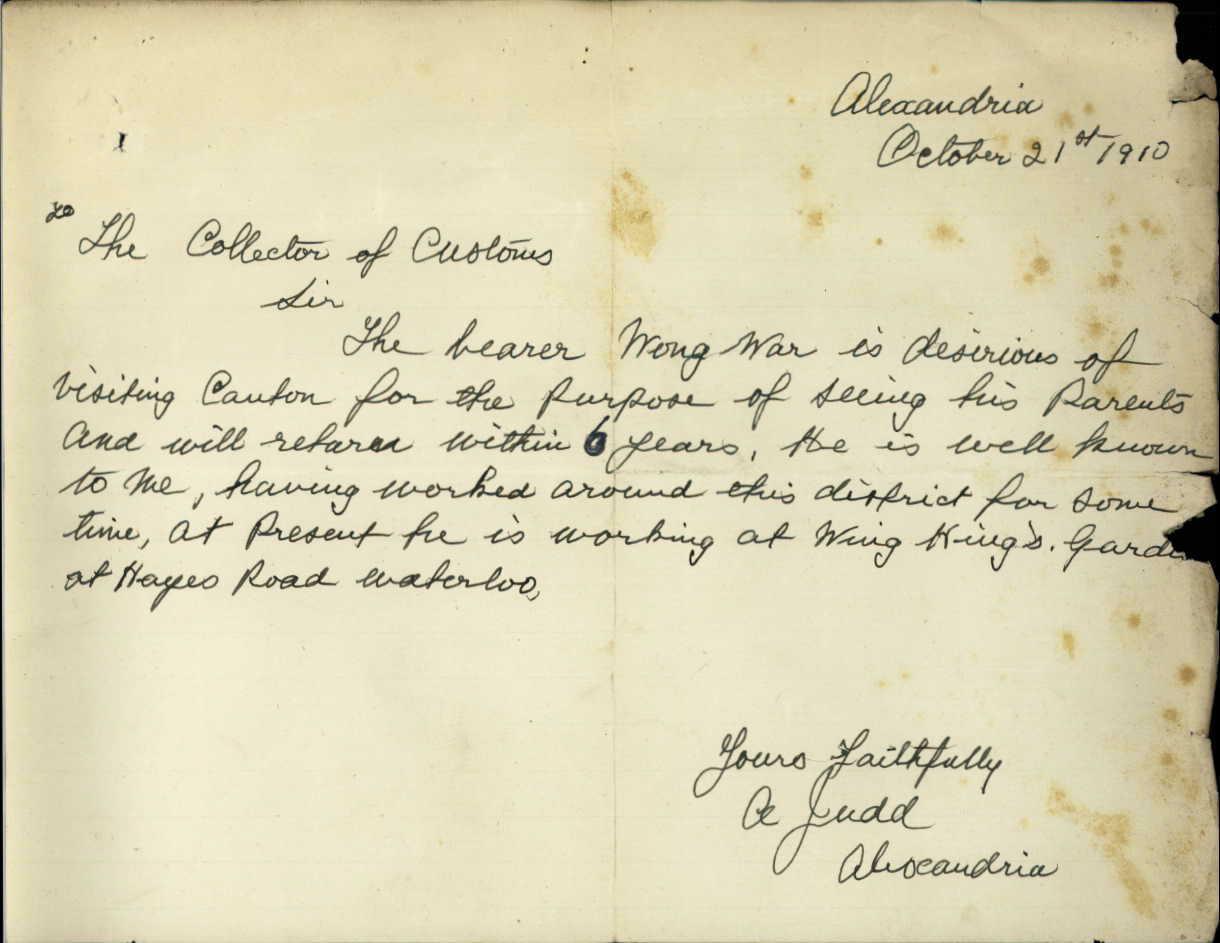 Alexandria
October 21st 1910
To
The Collector of Customs
Sir
The bearer Wong War is desirious of
visiting Canton for the Purpose of seeing his Parents
and will return within 6 years. He is well known
to me, having worked around this district for some
time, at Present he is working at Wing King's. Garde
at Hayes Road Waterloo,
Yours Faithfully
A Judd
Alexandria